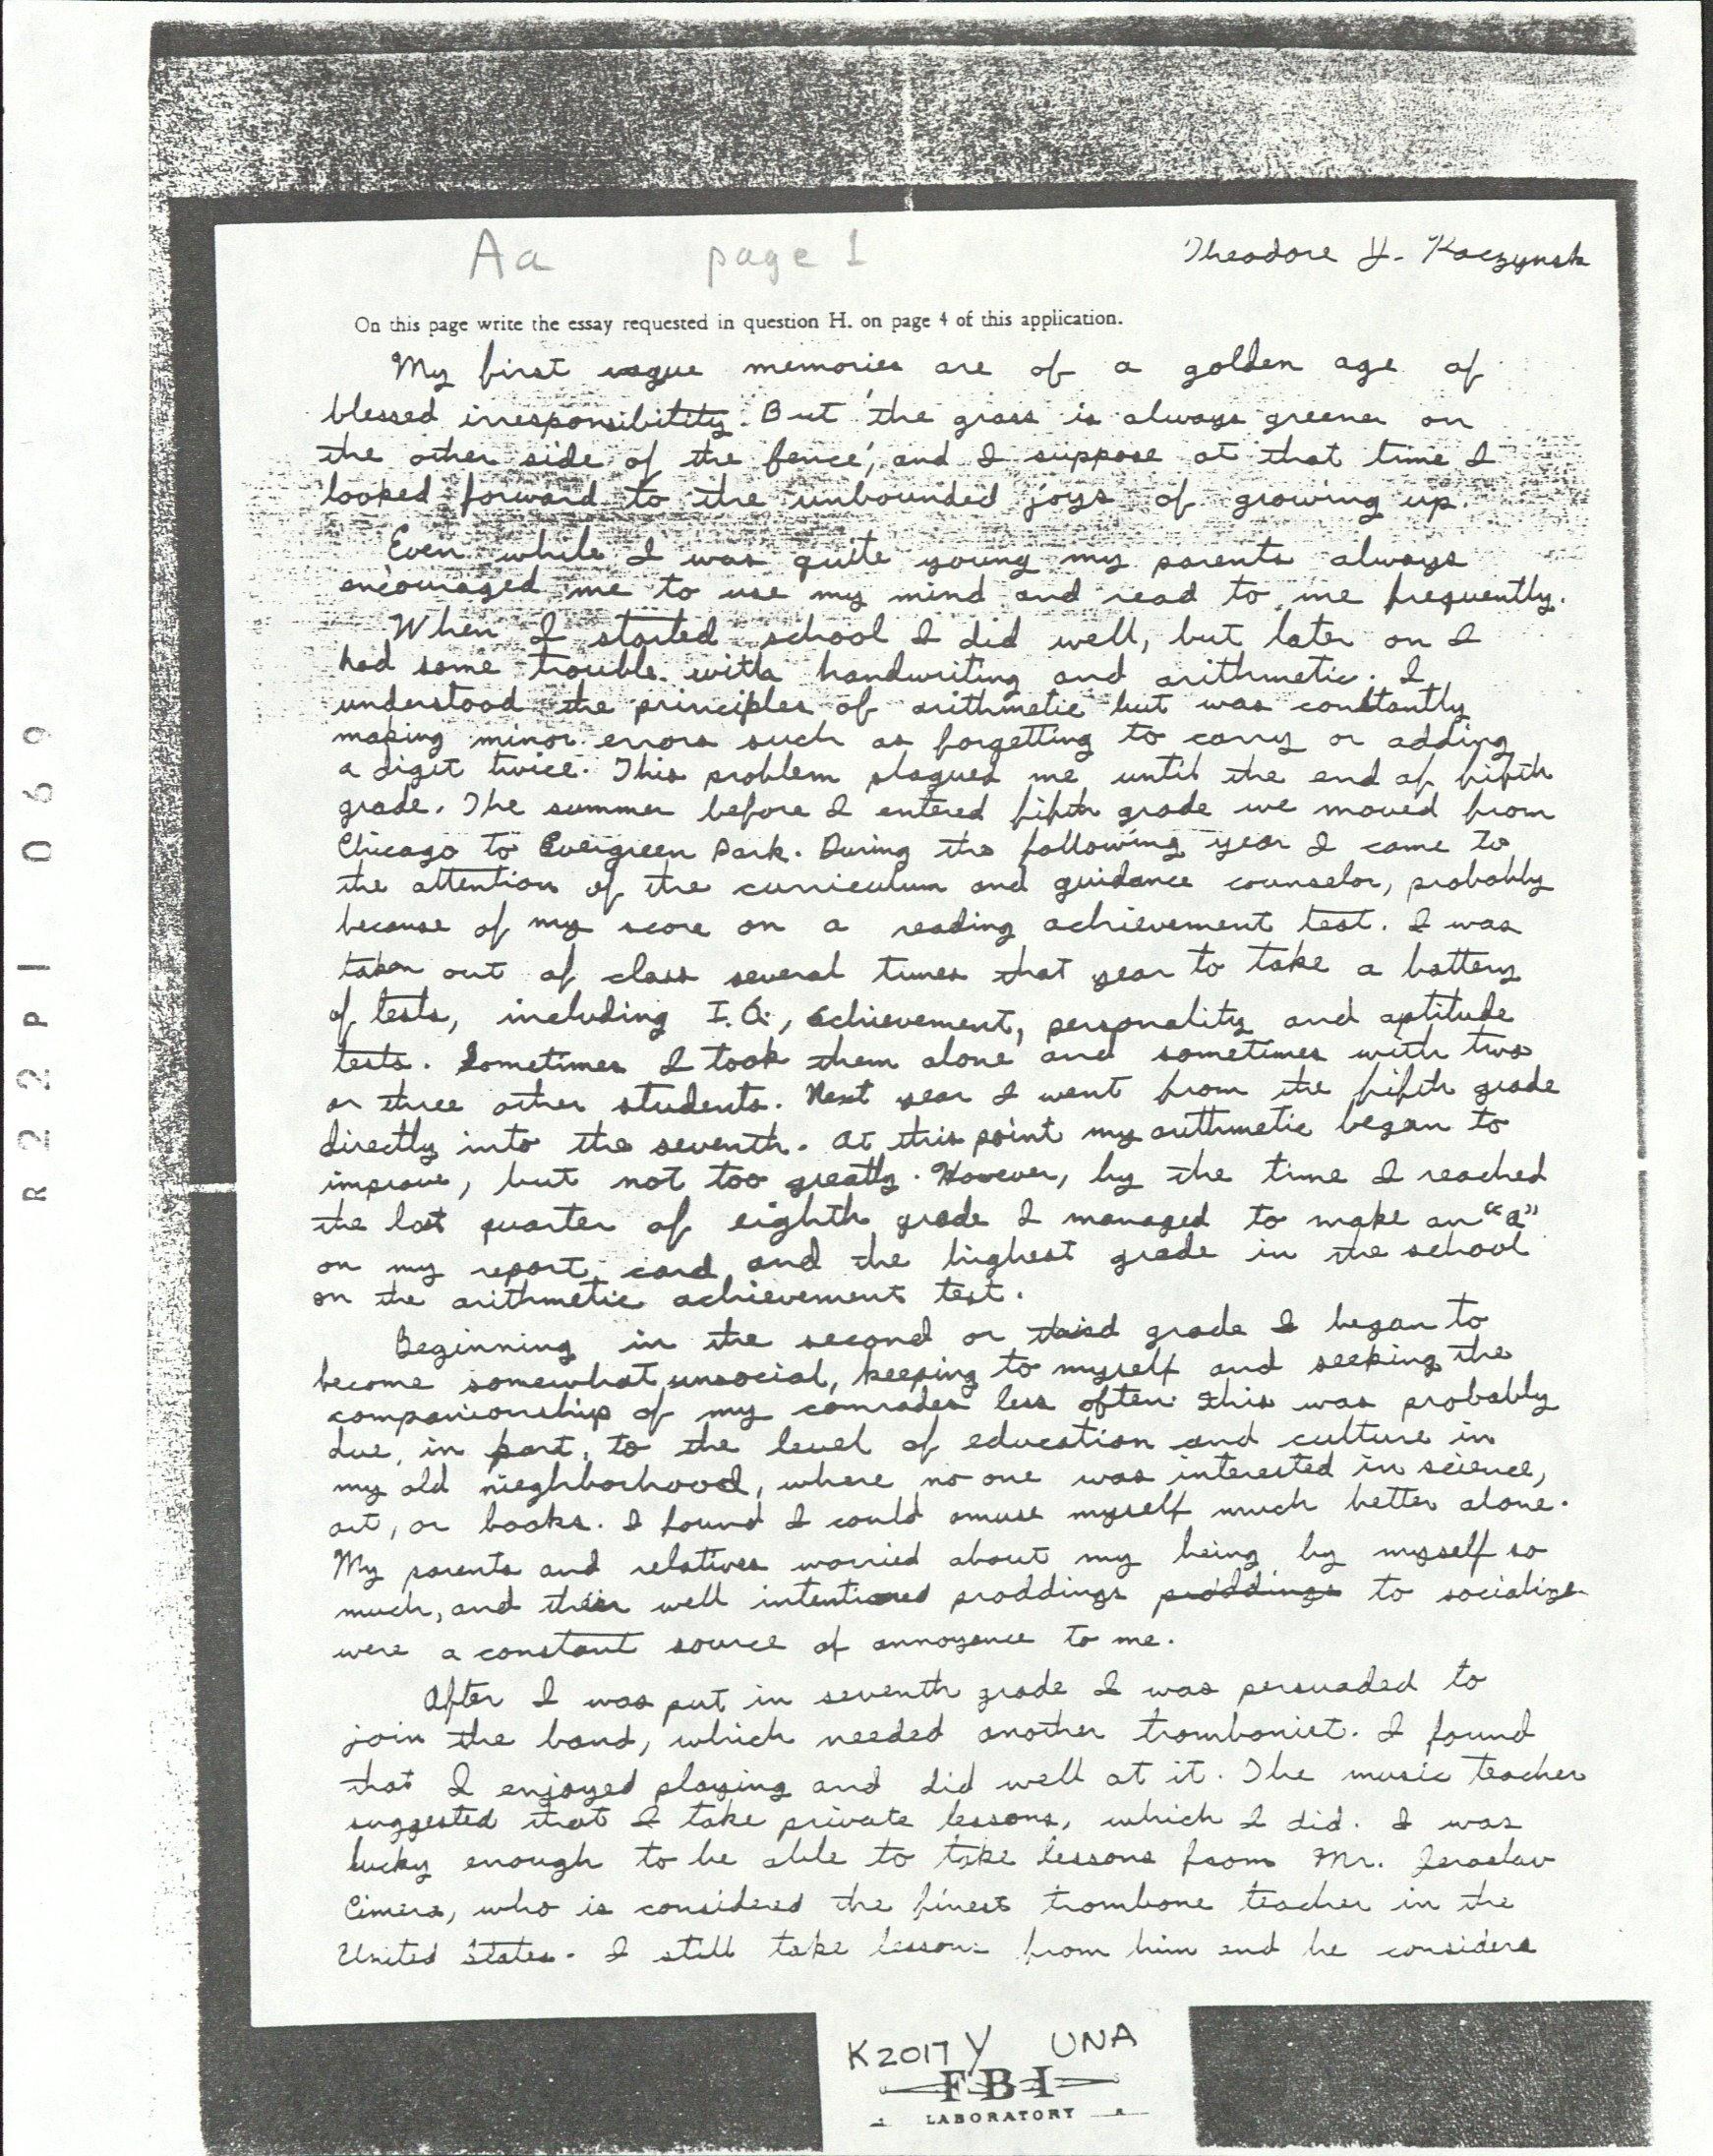 Aa page 1 Theodore J. Kaczynski
On this page write the essay requested in question H. on page 4 of this application.
My first vague memories are of a golden age of
blessed irresponsibility. But 'the grass is always greener on
the other side of the fence', and I suppose at that time I
looked forward to the unbounded joys of growing up.
Even while I was quite young my parents always
encouraged me to use my mind and read to me frequently.
When I started school I did well, but later on I
had some trouble with handwriting and arithmetic. I
understood the principles of arithmetic but was constantly
making minor errors such as forgetting to carry or adding
a digit twice. This problem plagued me until the end of fifth
grade. The summer before I entered fifth grade we moved from
Chicago to Evergreen Park. During the following year I came to
the attention of the curriculum and guidance counselor, probably
because of my score on a reading achievement test. I was
taken out of class several times that year to take a battery
of tests, including I.Q., achievement, personality and aptitude
tests. Sometimes I took them alone and sometimes with two
or three other students. Next year I went from the fifth grade
directly into the seventh. At this point my arithmetic began to
improve, but not too greatly. However, by the time I reached
the last quarter of eighth grade I managed to make an "a"
on my report card and the highest grade in the school
on the arithmetic achievement test.
Beginning in the second or third grade I began to
become somewhat unsocial, keeping to myself and seeking the
companionship of my comrades less often. This was probably
due, in part, to the level of education and culture in
my old nieghborhood, where no one was interested in science,
art, or books. I found I could amuse myself much better alone.
My parents and relatives worried about my being by myself so
much, and their well intentioned proddings proddings to socialize
were a constant source of annoyance to me.
After I was put in seventh grade I was persuaded to
join the band, which needed another trombonist. I found
that I enjoyed playing and did well at it. The music teacher
suggested that I take private lessons, which I did. I was
lucky enough to be able to take lessons from Mr. Jaroslav
Cimera, who is considered the finest trombone teacher in the
United States. I still take lessons from him and he considers
K2017 Y UNA
FBI
LABORATORY
R22PI069